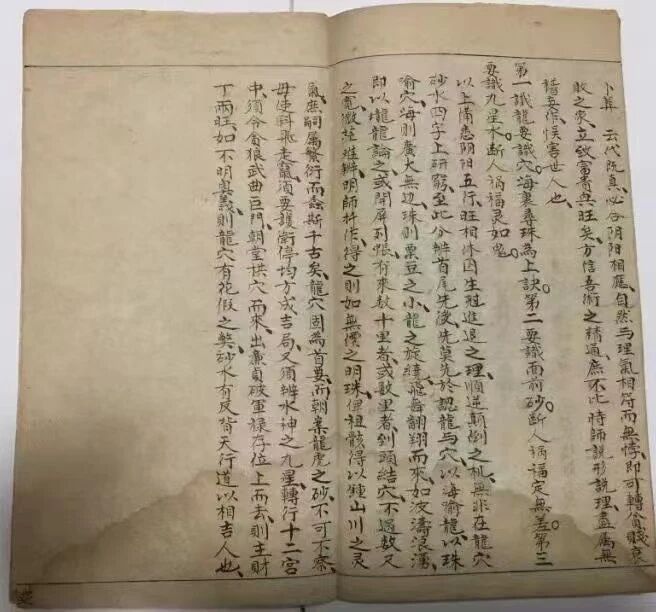 卜葬、云代阮真、必合阴阳相應、自然与理氣相符而無悖、即可轉貧賤衰
敗之家、立致富貴與旺矣、方信吾術之精通、庶不比時師說形說理、盡屬無
稽妄作、悮害世人也、
第一識龍要識穴、海裏尋珠為上訣。第二要識面前砂。断人禍福定無差。第三
要識九星水。断人禍福灵如鬼。
以上備悉阴阳五行、旺相休囚、生尅進退之理、順逆顛倒之机、無非在龍穴
砂水四字上研窮、至此分辨首尾先後、先莫先於認龍与穴、以海喻龍、以珠
喻穴、海則廣大無边、珠則粟豆之小、龍之旋繞飛舞翱翔而來、如波濤浪湧、
即以壠龍論之、或開屏列帳、有來数十里者、或数里者、到頭結穴、不過数丈
之寬、微茫难辨、明師扦作得之、則如無價之明珠、俾祖骸得以鍾山川之灵
氣、庶嗣属繁衍、而螽斯千古矣、龍穴固為首要、而朝案龍虎之砂、不可不察、
毋使斜飛走竄、須要護衛停均、方成吉局、又須辨水神之九星、轉行十二宮
中、須令貪狼武曲巨門、朝堂拱穴而來、出廉貞破軍祿存位上而去、則主財
丁兩旺、如不明奧義、則龍穴有花假之美、砂水有反背天行道以相吉人也、